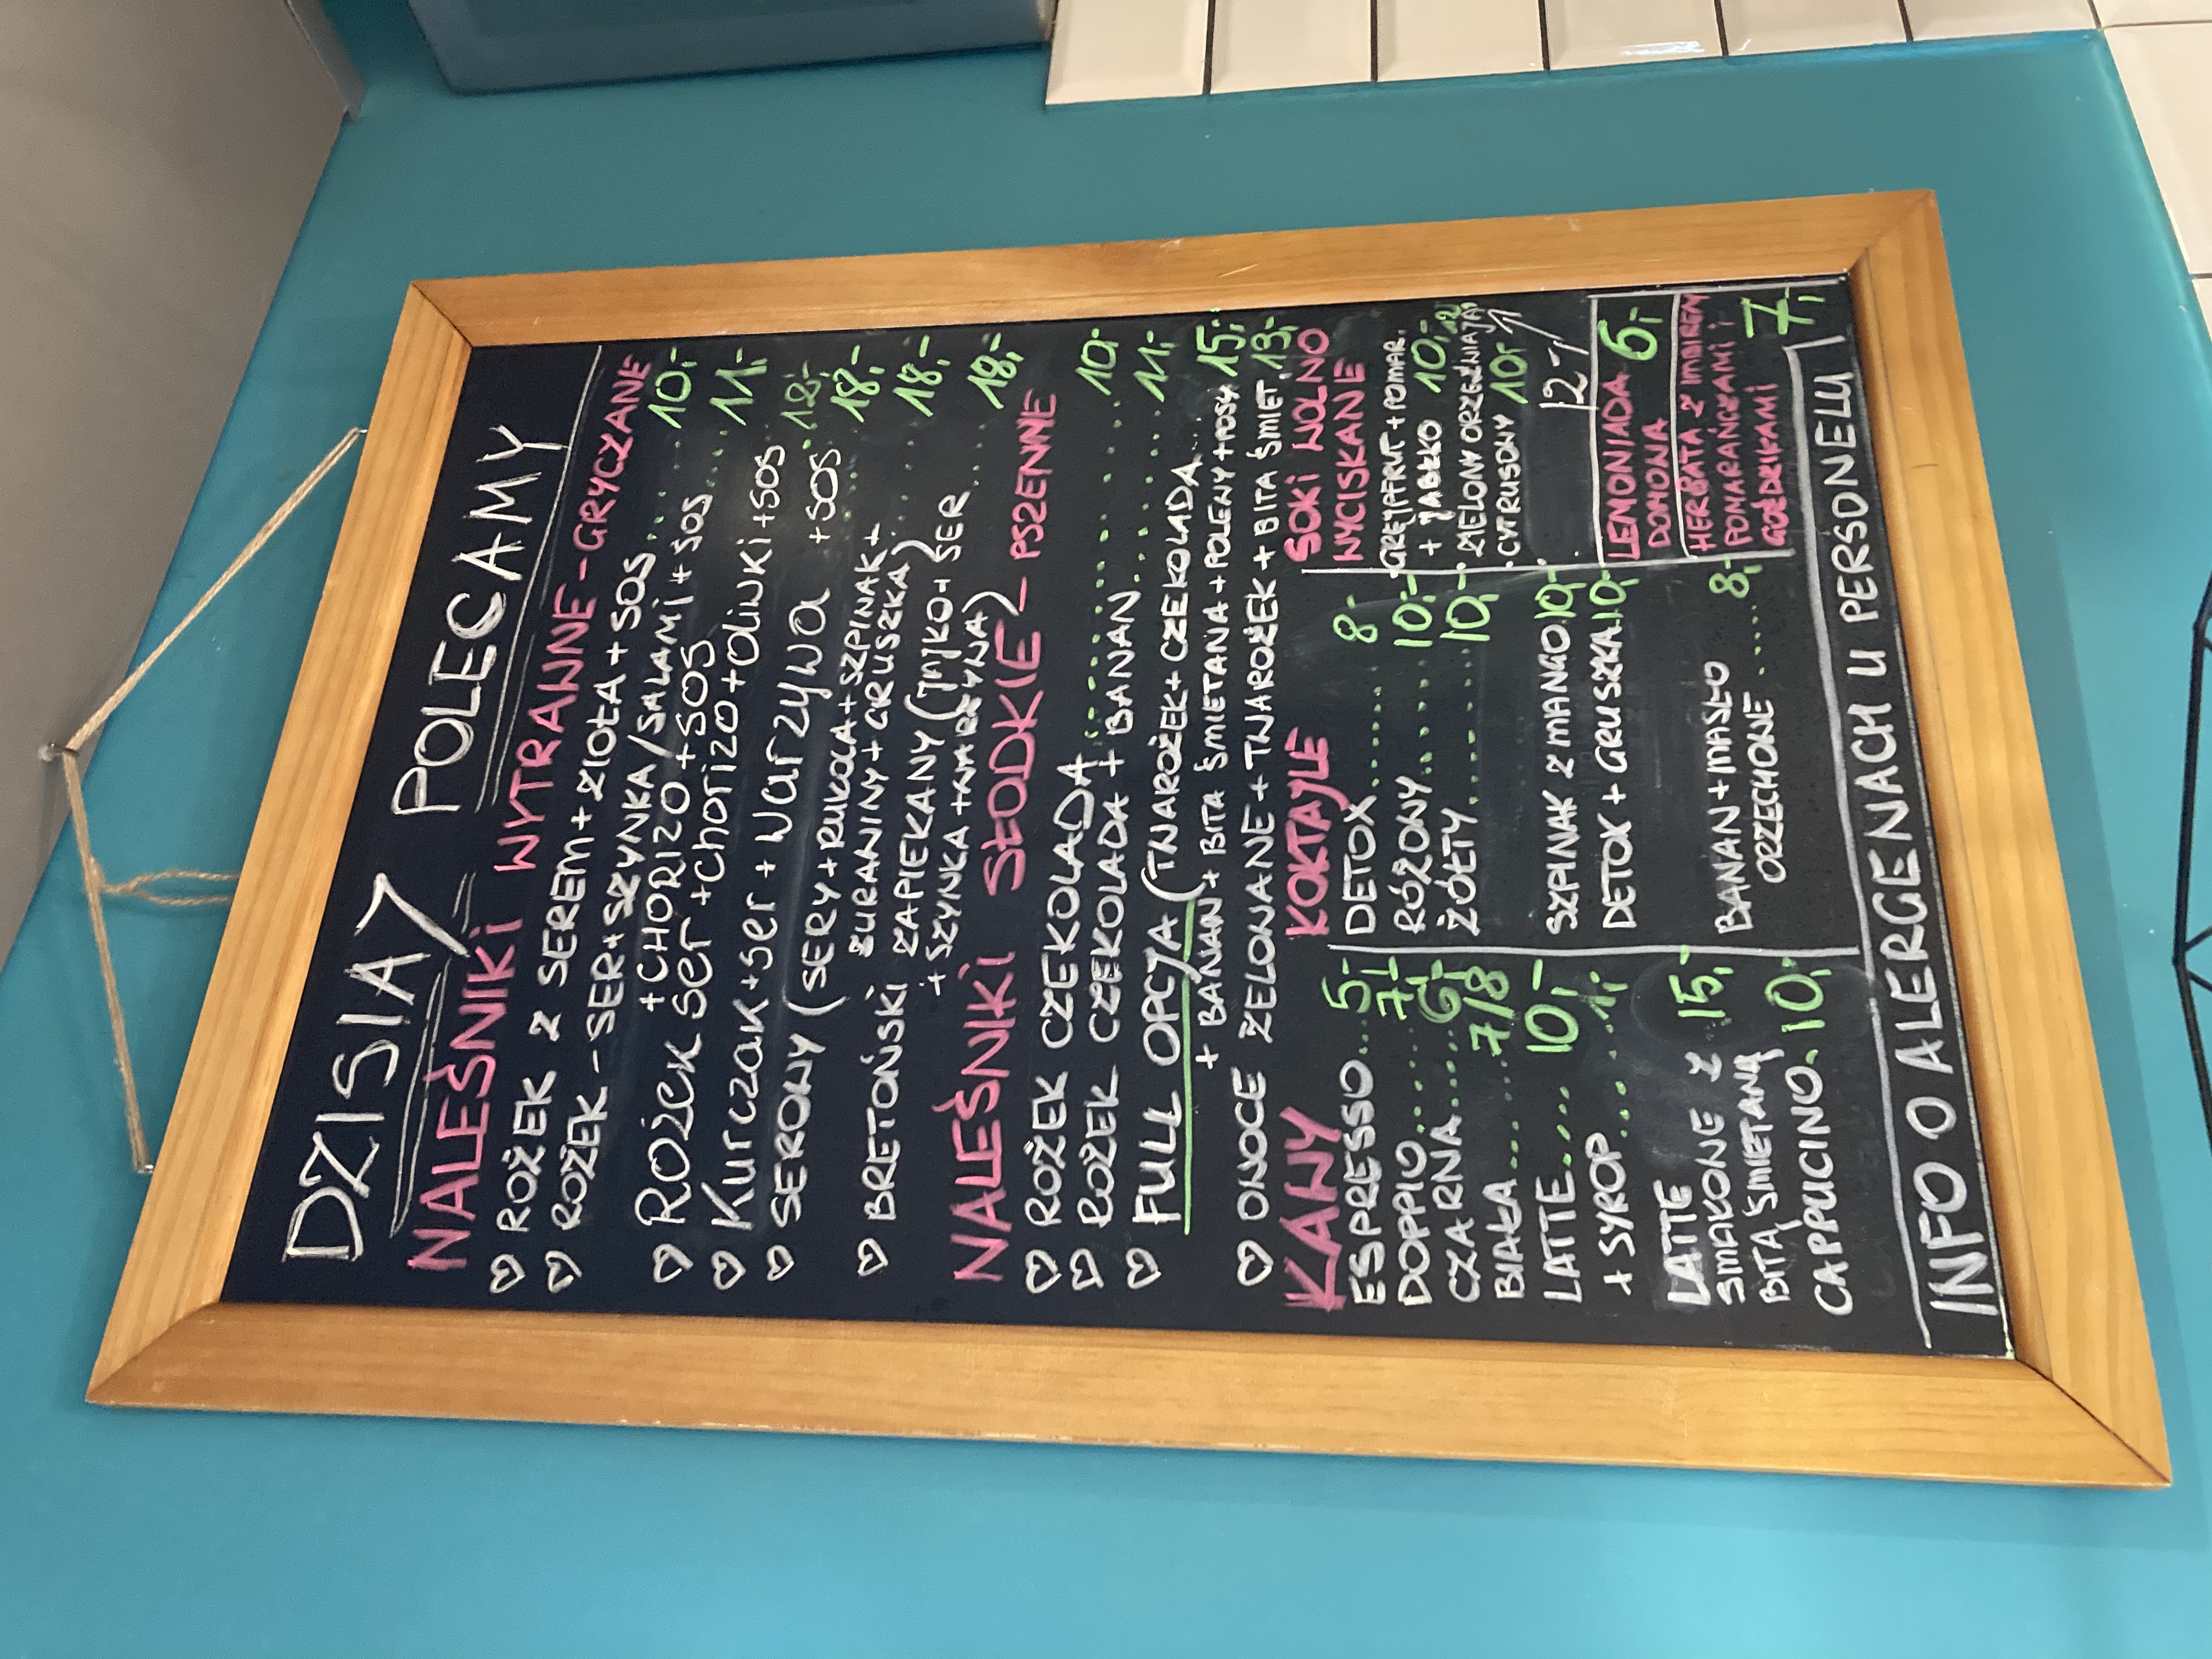 DZISIAJ POLECAMY
NALEŚNIKI WYTRAWNE - GRYCZANE
♡ ROŻEK Z SEREM + ZIOŁA + SOS ... 10,-
♡ ROŻEK - SER + SZYNKA / SALAMI + SOS ... 11,-
+ CHORIZO + SOS
♡ Rożek ser + chorizo + oliwki + sos 12,-
♡ Kurczak + ser + warzywa + sos 18,-
♡ SEROWY (SERY + RUKOLA + SZPINAK +
ŻURAWINY + GRUSZKA) ... 18,-
♡ BRETOŃSKI ZAPIEKANY (JAJKO + SER
+ SZYNKA + WARZYWA) ... 18,-
NALEŚNIKI SŁODKIE - PSZENNE
♡ ROŻEK CZEKOLADA ... 10,-
♡ ROŻEK CZEKOLADA + BANAN ... 11,-
♡ FULL OPCJA (TWAROŻEK + CZEKOLADA ...
+ BANAN + BITA ŚMIETANA + POLEWY + POSY 15,-
♡ OWOCE ŻELOWANE + TWAROŻEK + BITA ŚMIET. 13,-
KAWY
ESPRESSO ... 5,-
DOPPIO ... 7,-
CZARNA ... 6,-
BIAŁA ... 7/8
LATTE ... 10,-
+ SYROP ... 1,-
LATTE
SMAKOWE Z 15,-
BITĄ ŚMIETANĄ
CAPPUCINO. 10,-
KOKTAJLE
DETOX ... 8,-
RÓŻOWY ... 10,-
ŻÓŁTY ... 10,-
SZPINAK Z MANGO 10,-
DETOX + GRUSZKA 10,-
BANAN + MASŁO 8,-
ORZECHOWE ...
SOKI WOLNO
WYCISKANE
· GREJPFRUT + POMAR.
+ JABŁKO 10,- 12
· ZIELONY ORZEŹWIAJĄ
· CYTRUSOWY 10,-
12,-
LEMONIADA
DOMOWA 6,-
HERBATA Z IMBIREM
POMARAŃCZAMI i
GOŹDZIKAMI 7,-
INFO O ALERGENACH U PERSONELU